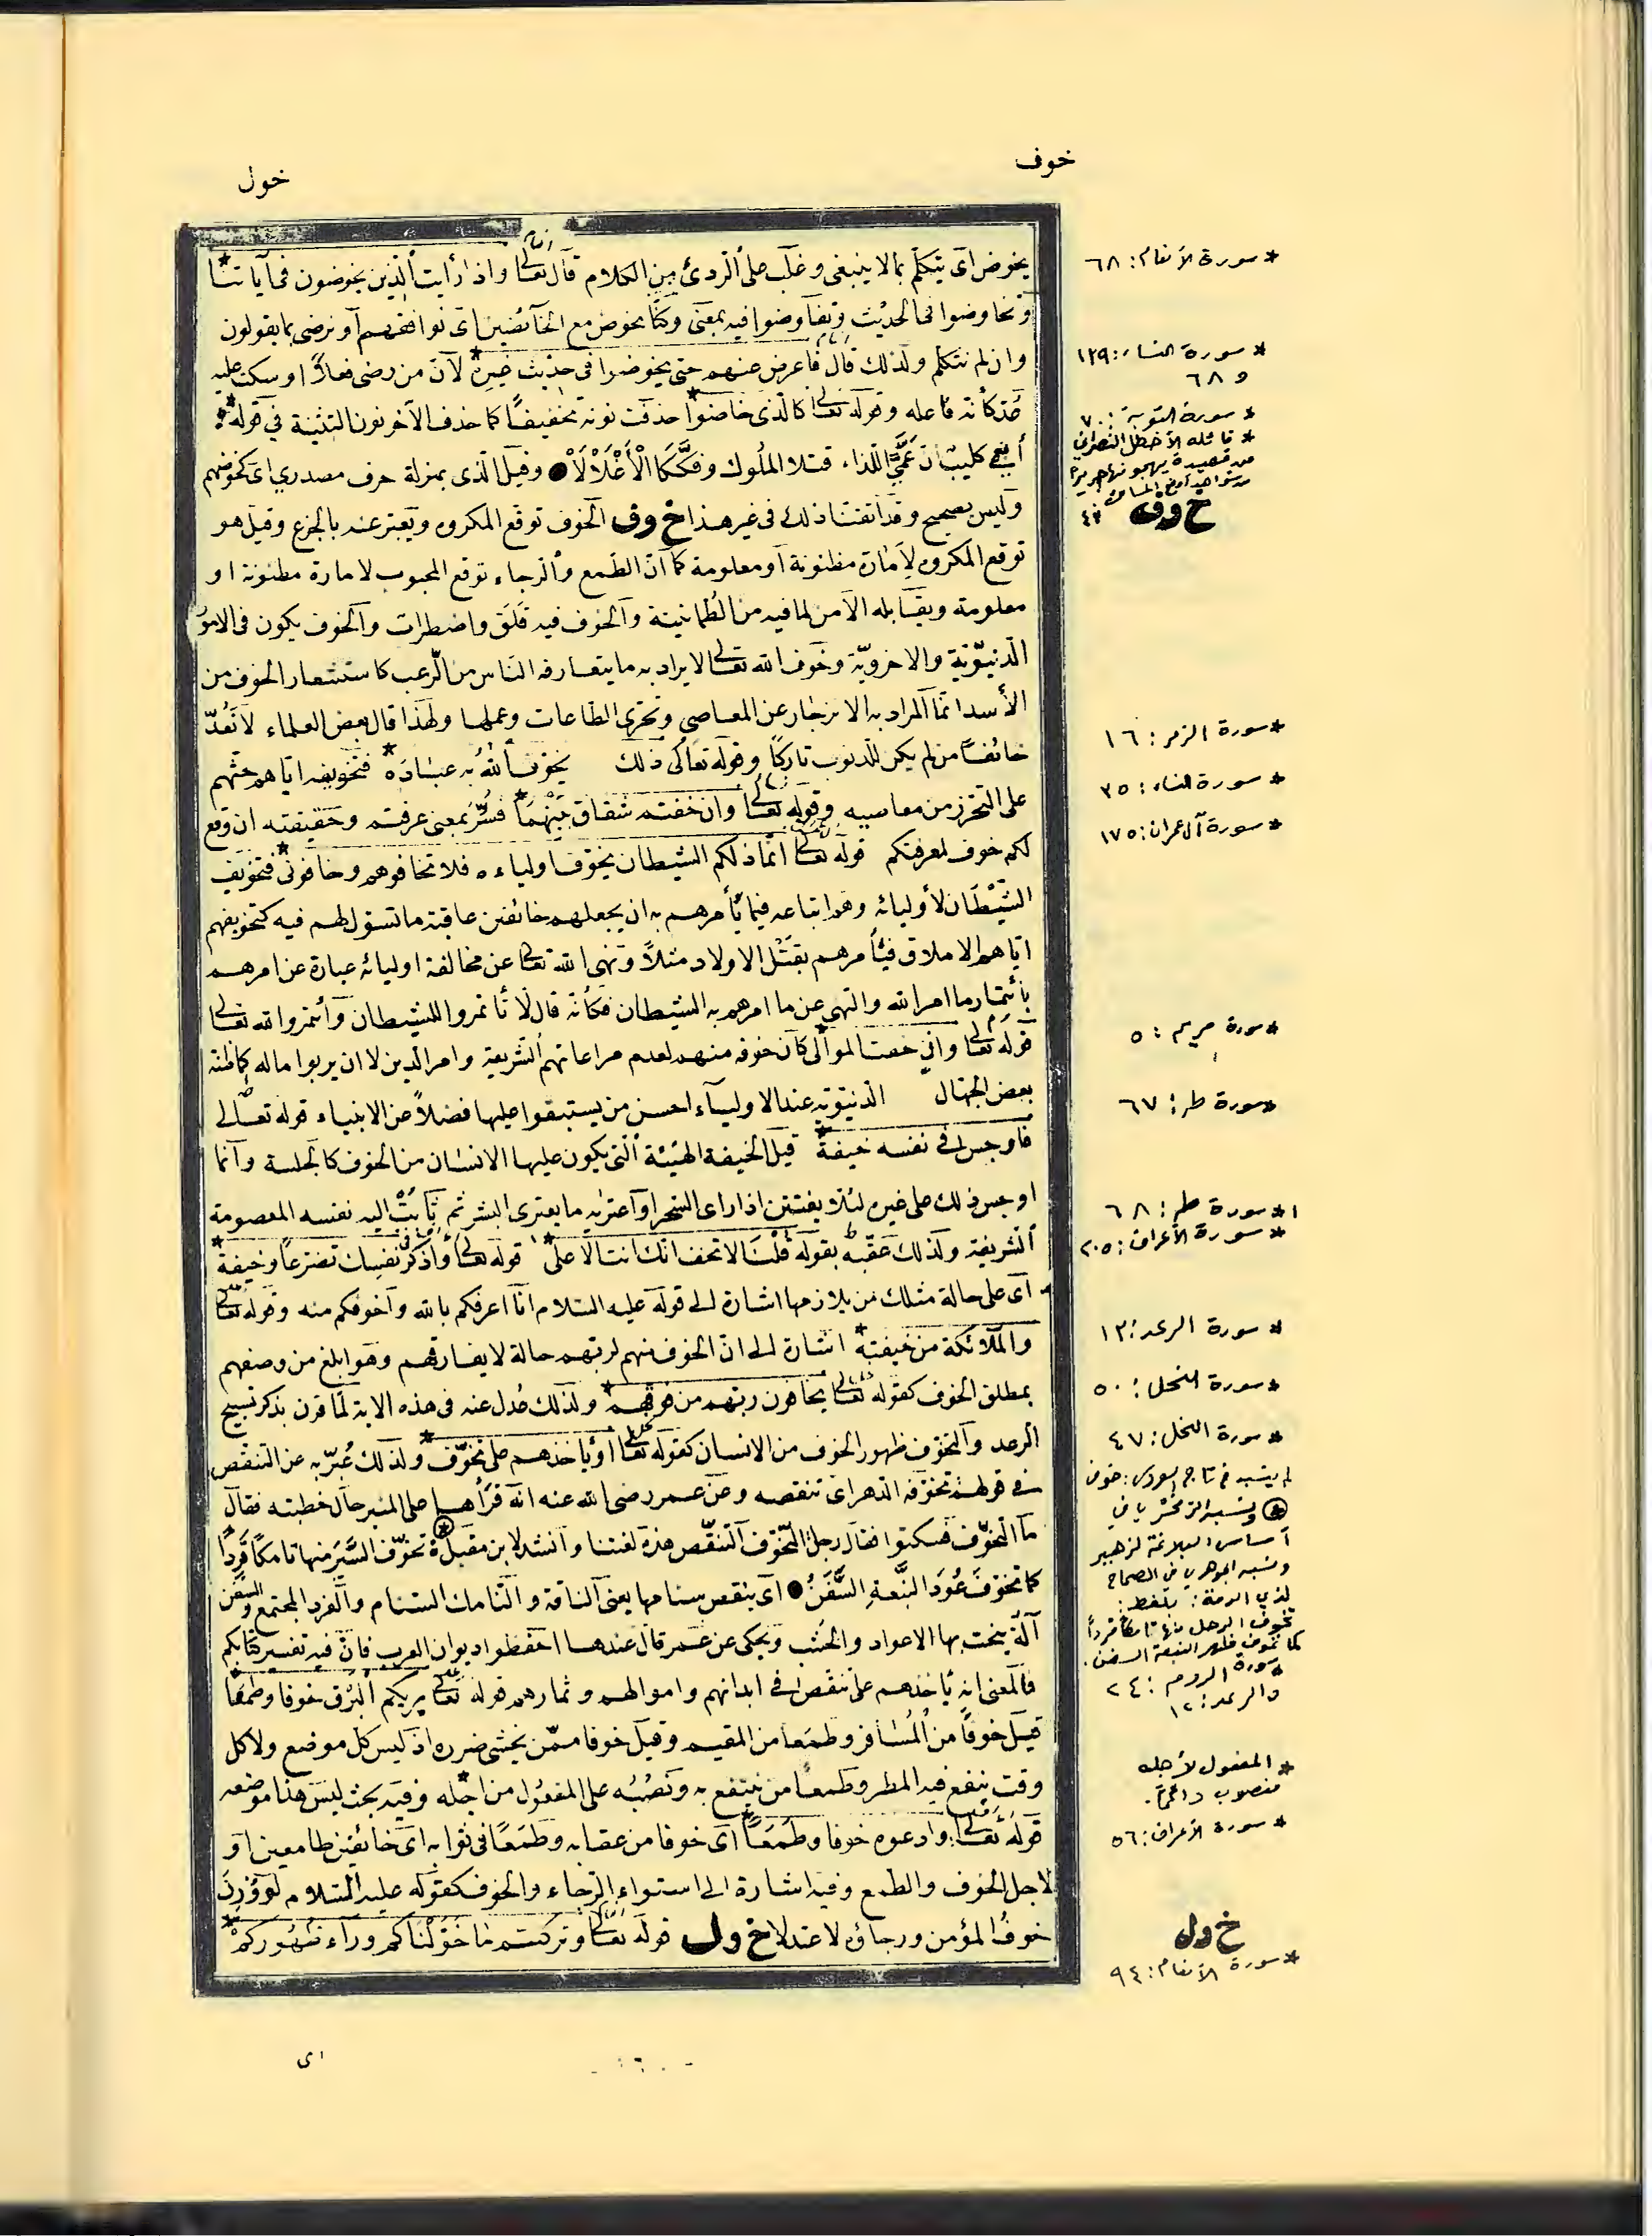 خوف
خول
يخوض اى يتكلم بما لا ينبغى وغلب على الردئ من الكلام قال تعالى واذا رأيت الذين يخوضون فى آياتنا*
وتخاوضوا فى الحديث وتفاوضوا فيه بمعنى وكنا نخوض مع الخائضين اى نوافقهم أو نرضى بما يقولون
وان لم نتكلم ولذلك قال فأعرض عنهم حتى يخوضوا فى حديث غيره* لان من رضى فعلاً او سكت عليه
عد كأنه فاعله وقوله تعالى كالذى خاضوا* حذفت نونه تخفيفاً كما حذف الآخر نون التثنية فى قوله*
أبنى كليب ان عمّيّ اللذا، قتلا الملوك وفككا الأغلالا ● وقيل الذى بمنزلة حرف مصدري اى كخوضهم
وليس بصحيح وقد اتقنا ذلك فى غير هذا خ وف الخوف توقع المكروه ويعبر عنه بالجزع وقيل هو
توقع المكروه لأمارة مظنونة أو معلومة كما ان الطمع والرجاء توقع المحبوب لامارة مظنونة او
معلومة ويقابله الأمن لما فيه من الطمانينة والخوف فيه قلق واضطراب والخوف يكون فى الامور
الدنيوية والاخروية وخوف الله تعالى لا يراد به ما يتعارفه الناس من الرعب كاستشعار الخوف من
الأسد انما المراد به الانزجار عن المعاصى وتحرى الطاعات وعملها ولهذا قال بعض العلماء لا تعدّ
خائفاً من لم يكن للذنوب تاركاً وقوله تعالى ذلك يخوف الله به عباده* فتخويفه اياهم حثهم
على التحرز من معاصيه وقوله تعالى وان خفتم شقاق بينهما* فسر بمعنى عرفتم وحقيقته ان وقع
لكم خوف لمعرفتكم قوله تعالى انما ذلكم الشيطان يخوف اولياءه فلا تخافوهم وخافونى* فتخويف
الشيطان لأوليائه وهم اتباعه فيما يأمرهم به ان يجعلهم خائفين عاقبة ما تسول لهم فيه كتخويفهم
اياهم الاملاق فيأمرهم بقتل الاولاد مثلاً ونهى الله تعالى عن مخالفة اوليائه عبارة عن امرهم
بأئتمار ما امر الله والنهى عن ما امرهم به الشيطان فكأنه قال لا تأتمروا للشيطان وأتمروا لله تعالى
قوله تعالى وانى خفت الموالى كان خوفه منهم لعدم مراعاتهم الشريعة وامر الدين لا ان يرثوا ماله كما ظنه
بعض الجهال الدنيوية عند الاولياء احسن من يستبقوا عليها فضلاً عن الانبياء قوله تعالى
فاوجس فى نفسه خيفة* قيل الخيفة الهيئة التى يكون عليها الانسان من الخوف كالجلسة وانما
اوجس ذلك على غيره لئلا يفتتن اذا راى السحر او اعتراه ما يعترى البشر ثم ثابت اليه نفسه المعصومة
الشريفة ولذلك عقبه بقوله قلنا لا تخف انك انت الاعلى* قوله تعالى واذكر نفسك تضرعاً وخيفة*
اى على حالة مثلك من يلازمها اشارة الى قوله عليه السلام انا اعرفكم بالله وأخوفكم منه وقوله تعالى
والملائكة من خيفته* اشارة الى ان الخوف منهم لربهم حالة لا يفارقهم وهو ابلغ من وصفهم
بمطلق الخوف كقوله تعالى يخافون ربهم من فوقهم* ولذلك عدل عنه فى هذه الاية لما قرن بذكر تسبيح
الرعد والتخوف ظهور الخوف من الانسان كقوله تعالى أو يأخذهم على تخوف* ولذلك عبر به عن التنقص
فى قولهم تخوفه الدهر اى تنقصه وعن عمر رضى الله عنه انه قرأها على المنبر حال خطبته فقال
ما التخوف فسكتوا فقال رجل التخوف التنقص هذه لغتنا وانشد لابن مقبل تخوف السير منها تامكا قرداً
كما تخوف عود النبعة السفن ● اى ينقص سنامها يعنى الناقة والتامك السنام والقرد المجتمع والسفن
آلة ينحت بها الاعواد والخشب ويحكى عن عمر قال عندها احفظوا ديوان العرب فان فيه تفسير كتابكم
فالمعنى انه يأخذهم على تنقص فى ابدانهم واموالهم وثمارهم قوله تعالى يريكم البرق خوفا وطمعا*
قيل خوفاً من المسافر وطمعا من المقيم وقيل خوفا ممن يخشى ضرره اذ ليس كل موضع ولا كل
وقت ينفع فيه المطر وطمعا من ينتفع به ونصبه على المفعول من اجله* وفيه بحث ليس هذا موضعه
قوله تعالى وادعوه خوفا وطمعاً* اى خوفا من عقابه وطمعاً فى ثوابه اى خائفين طامعين او
لاجل الخوف والطمع وفيه اشارة الى استواء الرجاء والخوف كقوله عليه السلام لو وزن
خوف المؤمن ورجاؤه لاعتدلا خ ول قوله تعالى وتركتم ما خولناكم وراء ظهوركم*
* سورة الأنعام: ٦٨
* سورة النساء: ١٣٩
و ٦٨
* سورة التوبة: ٧٠
* قائله الأخطل النصراني
من قصيدة يهجو بها جريرا
خ وف
* سورة الزمر: ١٦
* سورة النساء: ٣٥
* سورة آل عمران: ١٧٥
* سورة مريم: ٥
* سورة طه: ٦٧
١* سورة طه: ٦٨
* سورة الأعراف: ٢٠٥
* سورة الرعد: ١٣
* سورة النحل: ٥٠
* سورة النحل: ٤٧
لم ينسبه فى تاج العروس: خوف
⊛ ونسبه الزمخشري في
أساس البلاغة لزهير
ونسبه الجوهري في الصحاح
لذي الرمة: بلفظ:
تخوف الرحل منها تامكا قرداً
كما تخوف ظهر النبعة السفن.
* سورة الروم: ٢٤
والرعد: ١٢
* المفعول لأجله
منصوب دائماً.
* سورة الأعراف: ٥٦
خ ول
* سورة الأنعام: ٩٤
اى